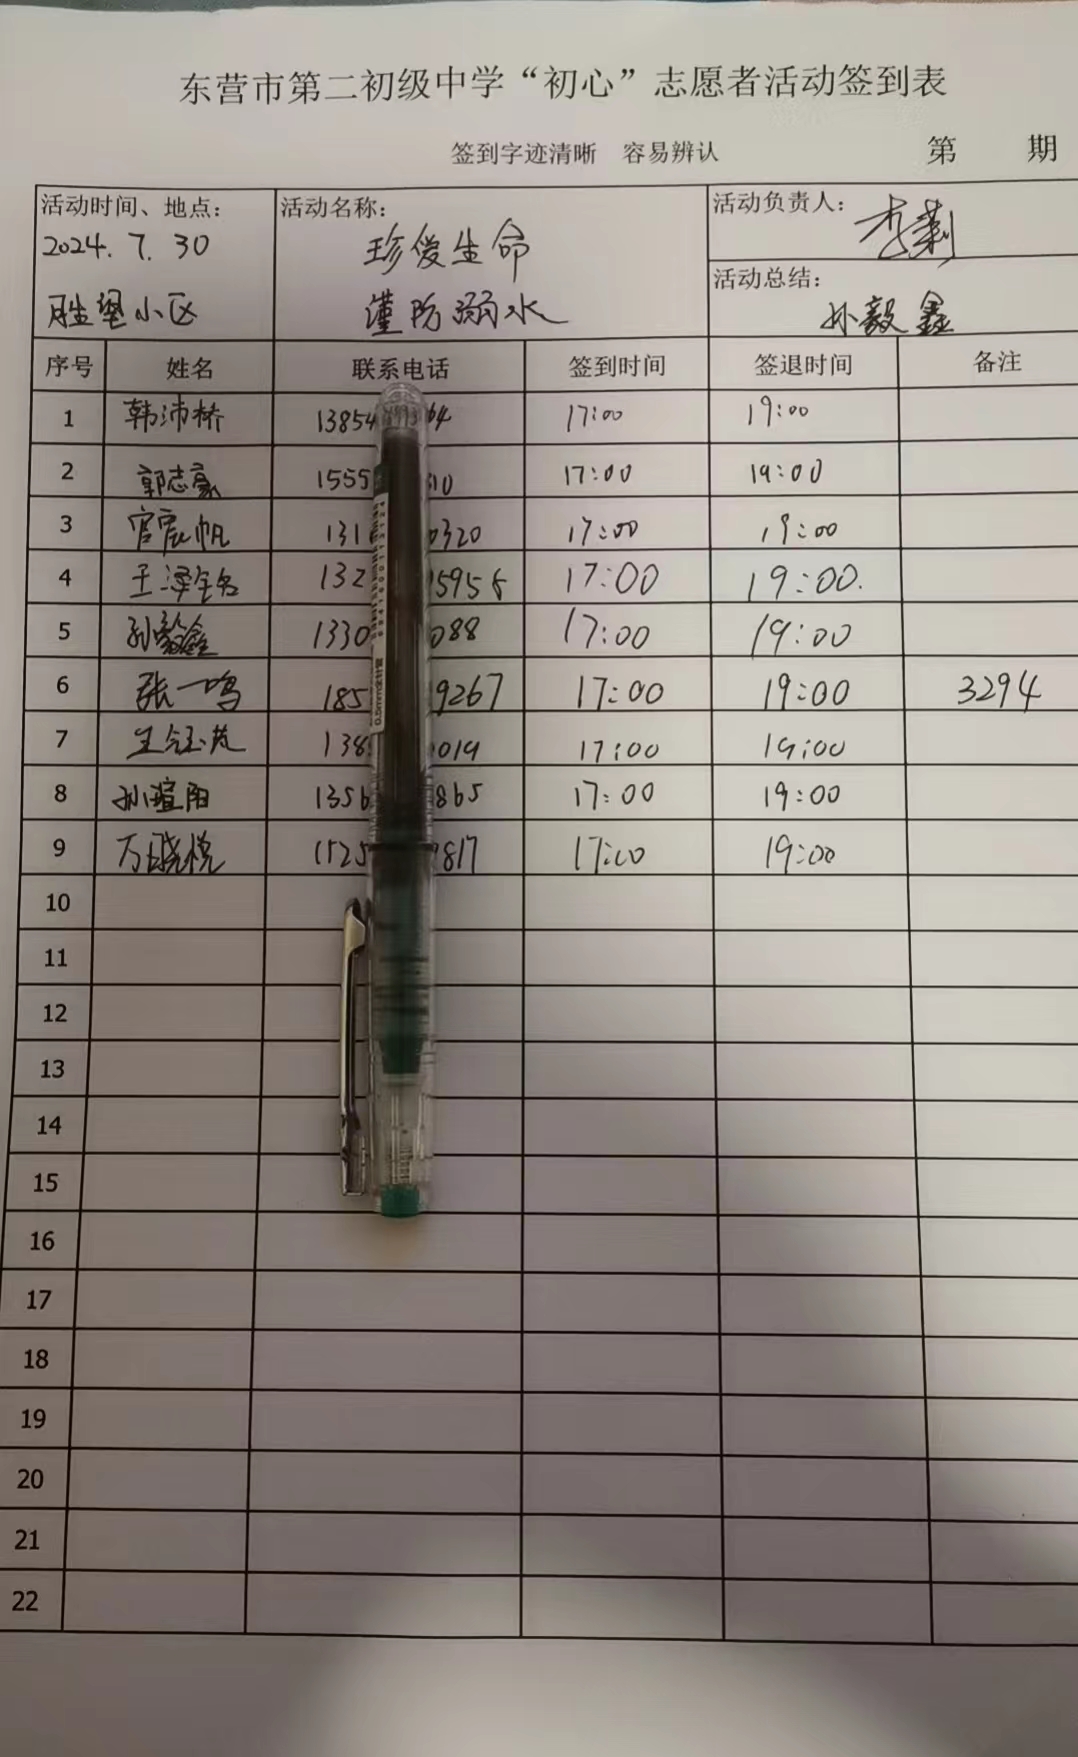 东营市第二初级中学“初心”志愿者活动签到表
签到字迹清晰 容易辨认 第 期
活动时间、地点： 活动名称： 活动负责人：
2024.7.30 珍爱生命
活动总结：
小区 谨防溺水 孙毅鑫
序号 姓名 联系电话 签到时间 签退时间 备注
1 韩沛桥 13854 64 17:00 19:00
2 郭志豪 1555 10 17:00 19:00
3 官宸帆 131 0320 17:00 19:00
4 王泽 132 5955 17:00 19:00.
5 孙毅鑫 1330 088 17:00 19:00
6 张一鸣 185 9267 17:00 19:00 3294
7 138 019 17:00 19:00
8 孙瑄阳 1356 865 17:00 19:00
9 万晓悦 1525 817 17:00 19:00
10
11
12
13
14
15
16
17
18
19
20
21
22